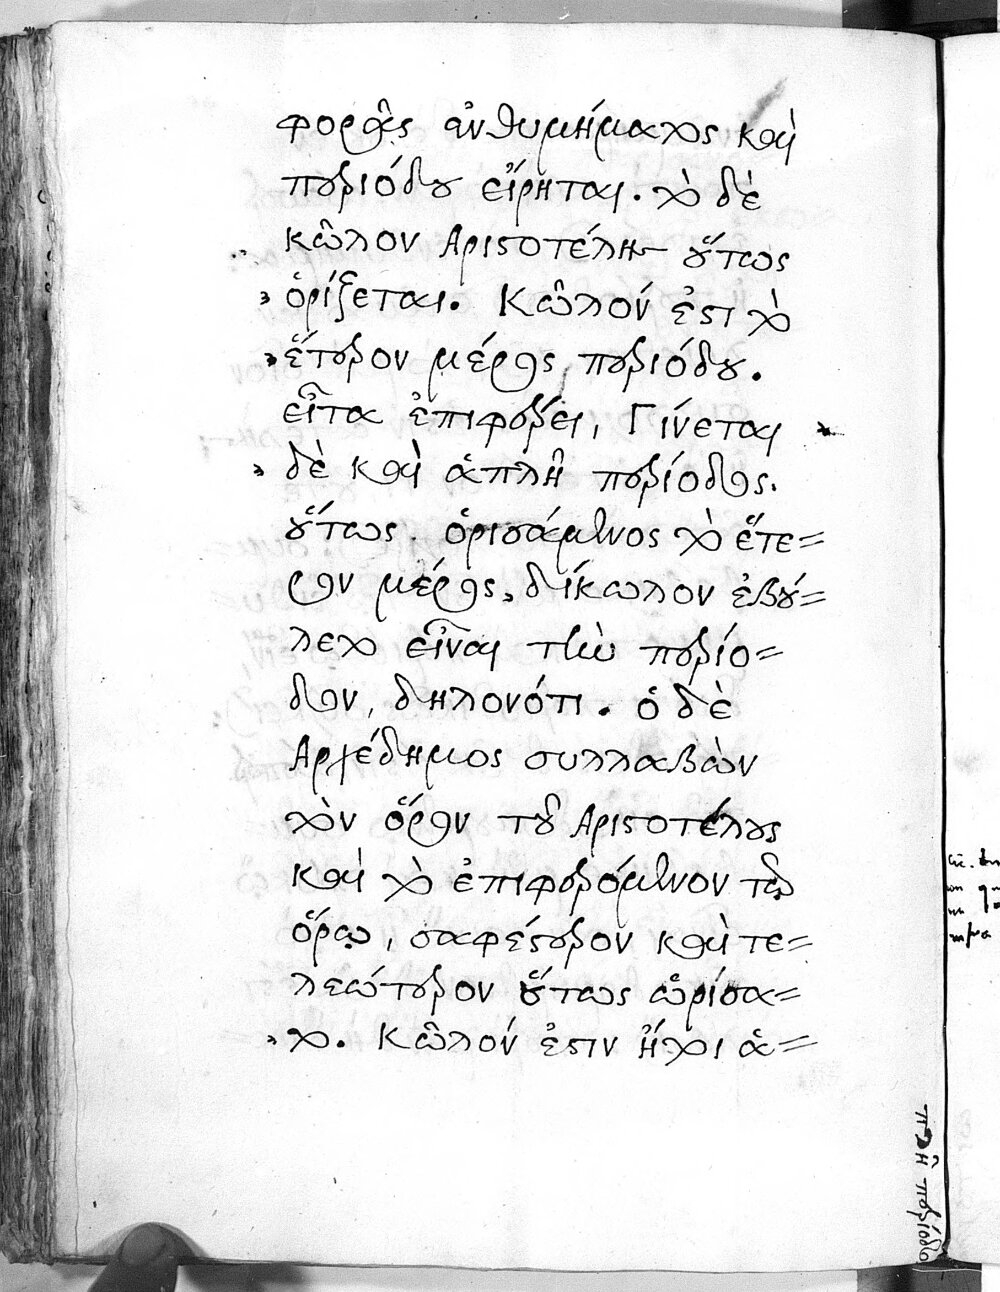 φορᾶς ἐνθυμήματος καὶ
περιόδου εἴρηται. τὸ δὲ
κῶλον Ἀριστοτέλης οὕτως
ὁρίζεται. Κῶλόν ἐστι τὸ
ἕτερον μέρος περιόδου.
εἶτα ἐπιφέρει, Γίνεται
δὲ καὶ ἁπλῆ περίοδος.
οὕτως ὁρισάμενος τὸ ἕτε=
ρον μέρος, δίκωλον ἐβού=
λετο εἶναι τὴν περίο=
δον, δηλονότι. ὁ δὲ
Ἀρχέδημος συλλαβὼν
τὸν ὅρον τοῦ Ἀριστοτέλους
καὶ τὸ ἐπιφερόμενον τῷ
ὅρῳ, σαφέστερον καὶ τε=
λεώτερον οὕτως ὡρίσα=
το. Κῶλόν ἐστιν ἤτοι ἁ=